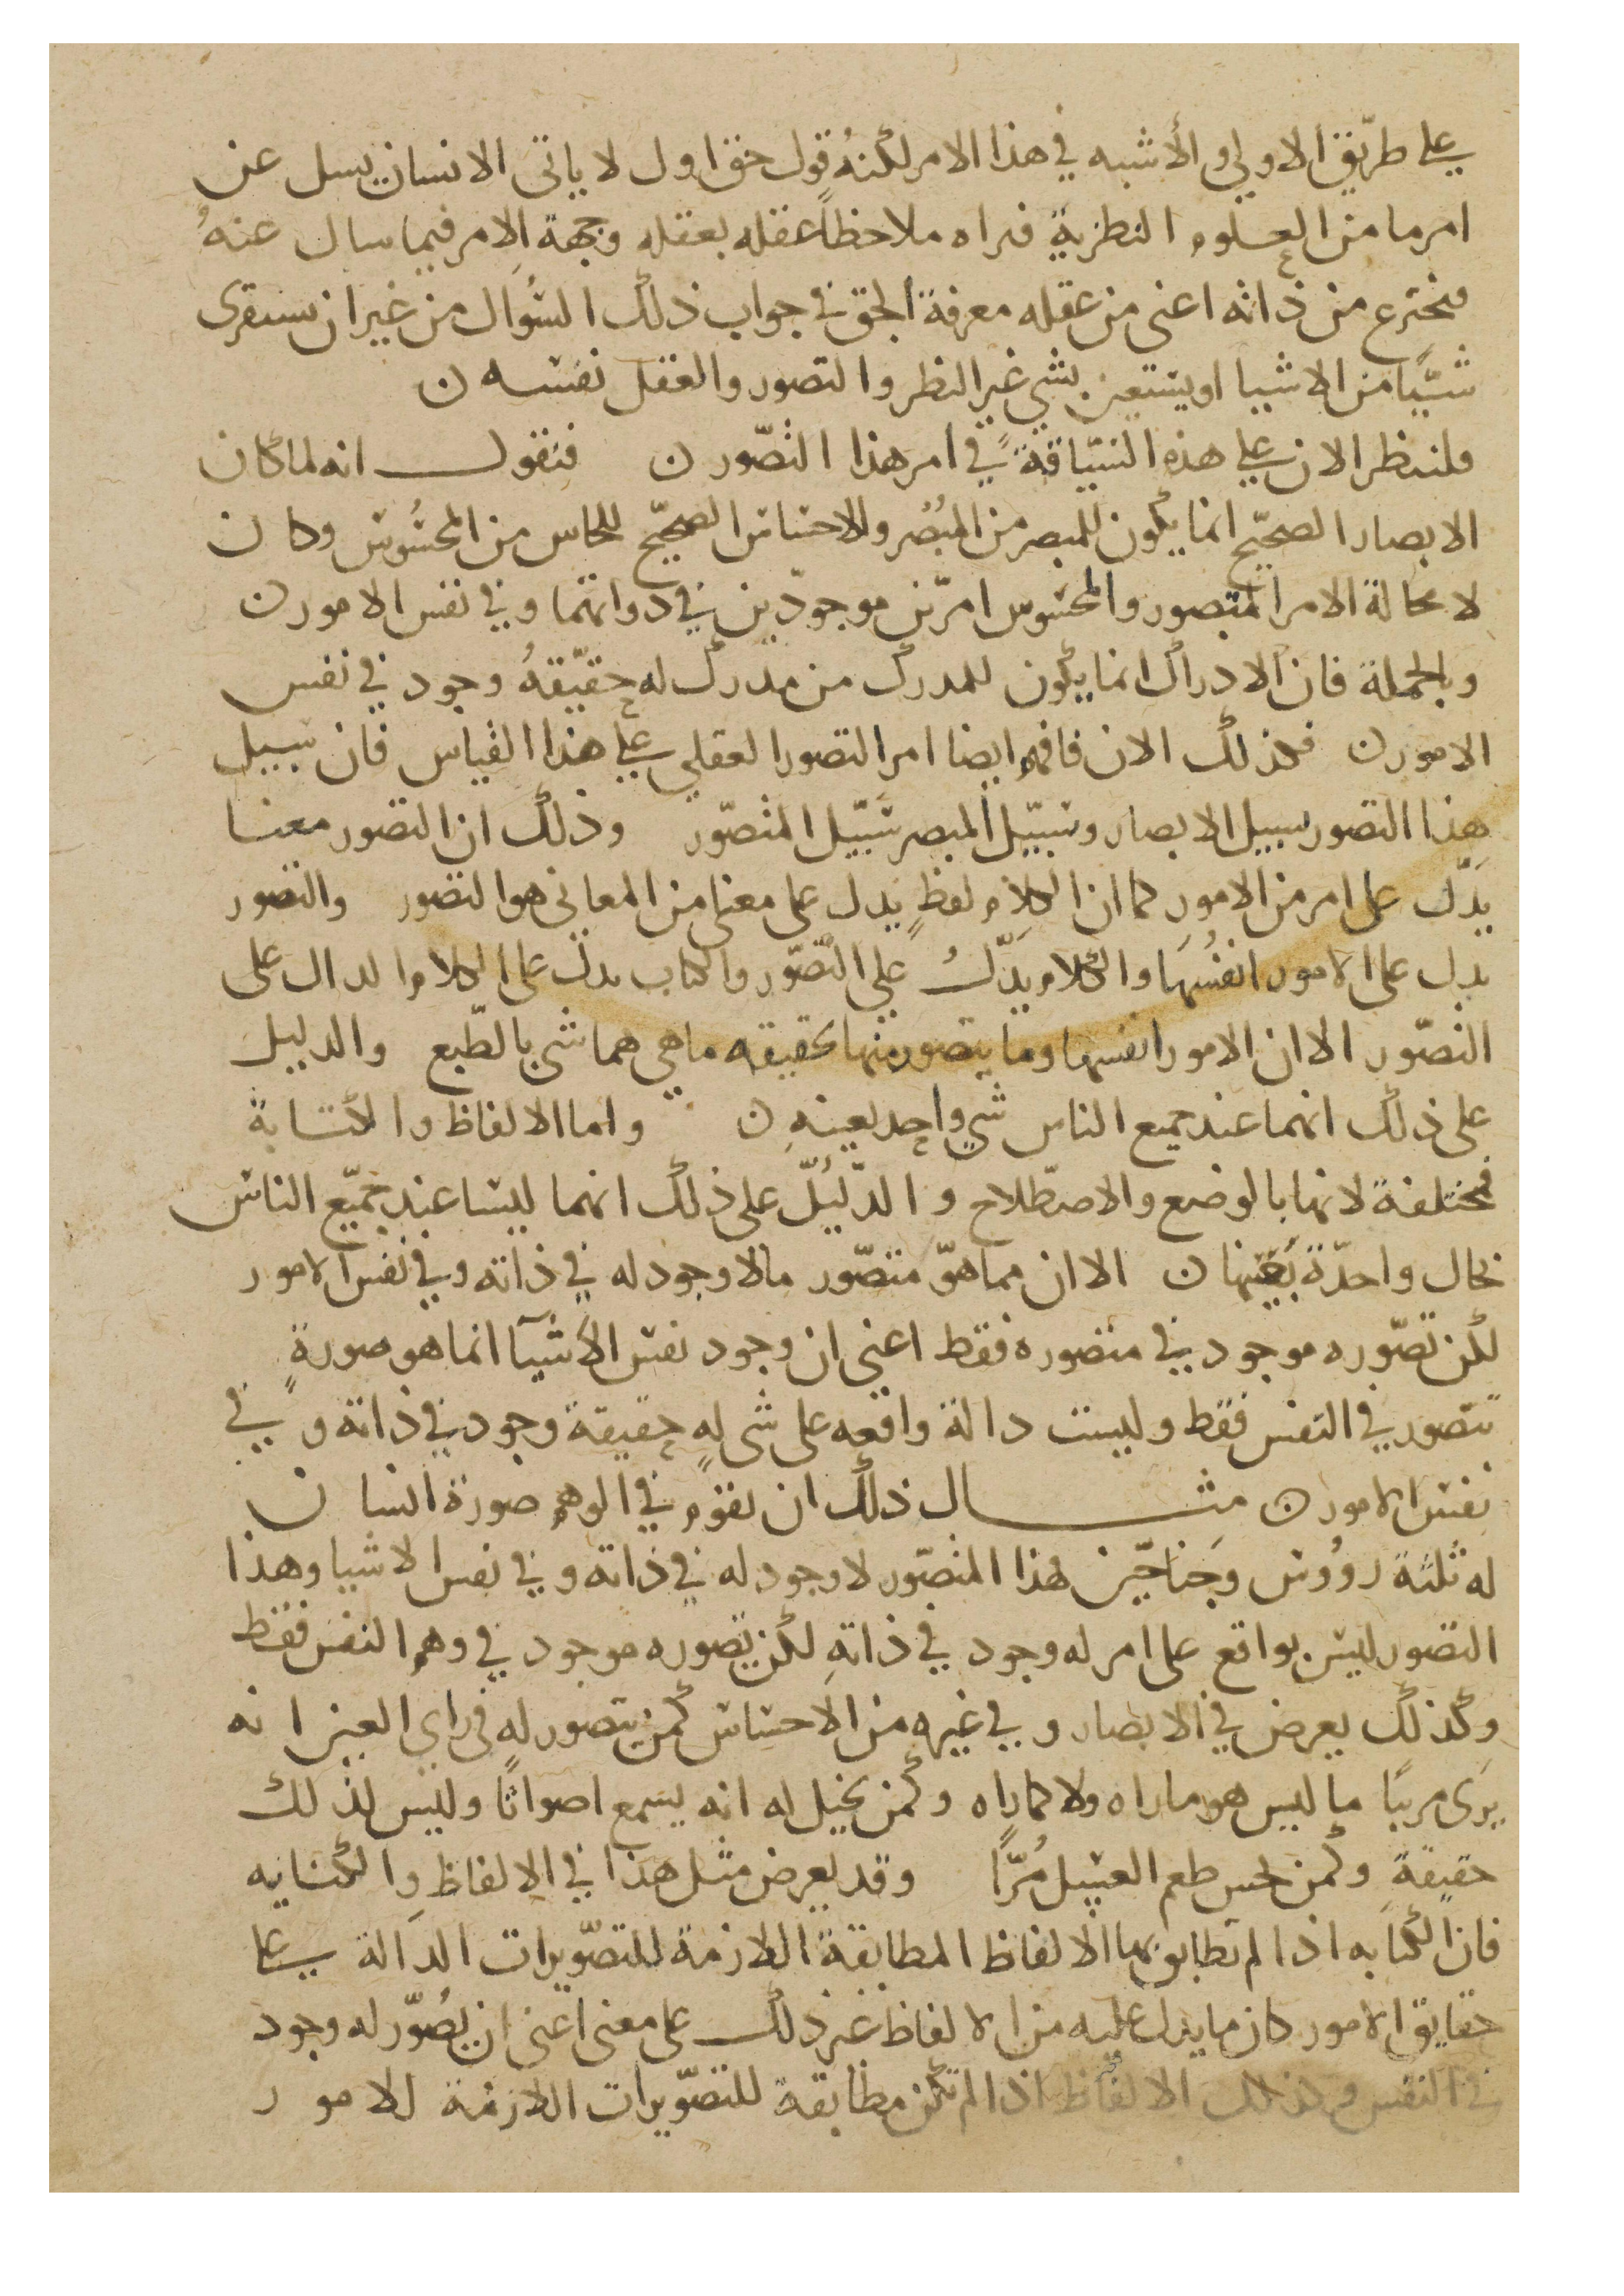 على طريق الاولي والأشبه في هذا الامر لكنهُ قول حق اول لا ياتى الانسان يسل عن
امر ما من العلوم النظرية فيراه ملاحظاً عقله بعقله وجهة الامر فيما سال عنهُ
فيخترع من ذاته اعنى من عقله معرفة الحق في جواب ذلك السُوال من غير ان يستقرى
شيًا من الاشيا او يستعين بشي غير النظر والتصور والعقل نفسه ن
فلننظر الان علي هذه السّياقة في امر هذا التصّور ن فنقول انه لما كان
الابصار الصحيّح انما يكون للمبصر من المبُصر والاحساس الصحيّح للحاس من المحسُوس وكان
لا محالة الامر المتصور والمحسوس امرّين موجودّين في ذواتهما وفي نفس الامور ن
وبالجملة فان الادراك انما يكون للمدرك من مدرك له حقيّقةُ وجود في نفس
الامور ن فكذلك الان فافهم ايضا امر التصور العقلي علي هذا القياس فان سبيل
هذا التصور سبيل الابصار وسبيّل المبصر سبيّل المتصّور وذلك ان التصور معنا
يدّل على امر من الامور كما ان الكلام لفظٍ يدل على معنى من المعاني هو التصور والتصور
يدل على الامور انفسُها والكلام يدّلُ علي التّصّور والكتاب يدل على الكلام الدال على
التصّور الا ان الامور انفسها وما يتصور منها بحقيقه ما هي هما شي بالطّبع والدليل
على ذلك انهما عند جميع الناس شي واحد بعينهِ ن واما الالفاظ والكتابة
فمختلفة لانها بالوضع والاصطّلاح والدّليلّ على ذلك انهما ليسا عند جميّع الناس
بحال واحدّة بعينها ن الا ان مما هوّ متصّور مالا وجود له في ذاته وفي نفس الامور
لكن تصّوره موجود في متصوره فقط اعني ان وجود نفس الأشيآ انما هو صورةٍ
تتصور في النفس فقط وليست دالة واقعه على شى لهِ حقيقة وجود في ذاته وفي
نفس الامور ن مثال ذلك ان يقوم في الوهم صورة انسان
له ثلثة روُوس وجناحيّن فهذا المتصّور لا وجود له في ذاته وفي نفس الاشيا وهذا
التصور ليس بواقع على امر له وجود في ذاتهِ لكن تصوره موجود في وهم النفس فقط
وكذلك يعرض في الابصار وفي غيره من الاحساس كمن يتصور له في راي العين انه
يرَى مريًا ما ليس هو ماراه ولا كما راه وكمن يخيل له انه يسمع اصواتًا وليس لذلك
حقيقةِ وكمن يحس طعم العسل مُرًّا وقد يعرض مثل هذا في الالفاظِ والكتابه
فان الكتابه اذا لم تطابق بها الالفاظ المطابقة اللازمة للتصّويرات الدالة على
حقايق الامور كان ما يدل عليه من الالفاظ غير ذلك على معنى اعنى ان يصُوّر له وجود
في النفس وكذلك الالفاظ اذا لم تكن مطابقة للتصّويرات اللازمة للامور